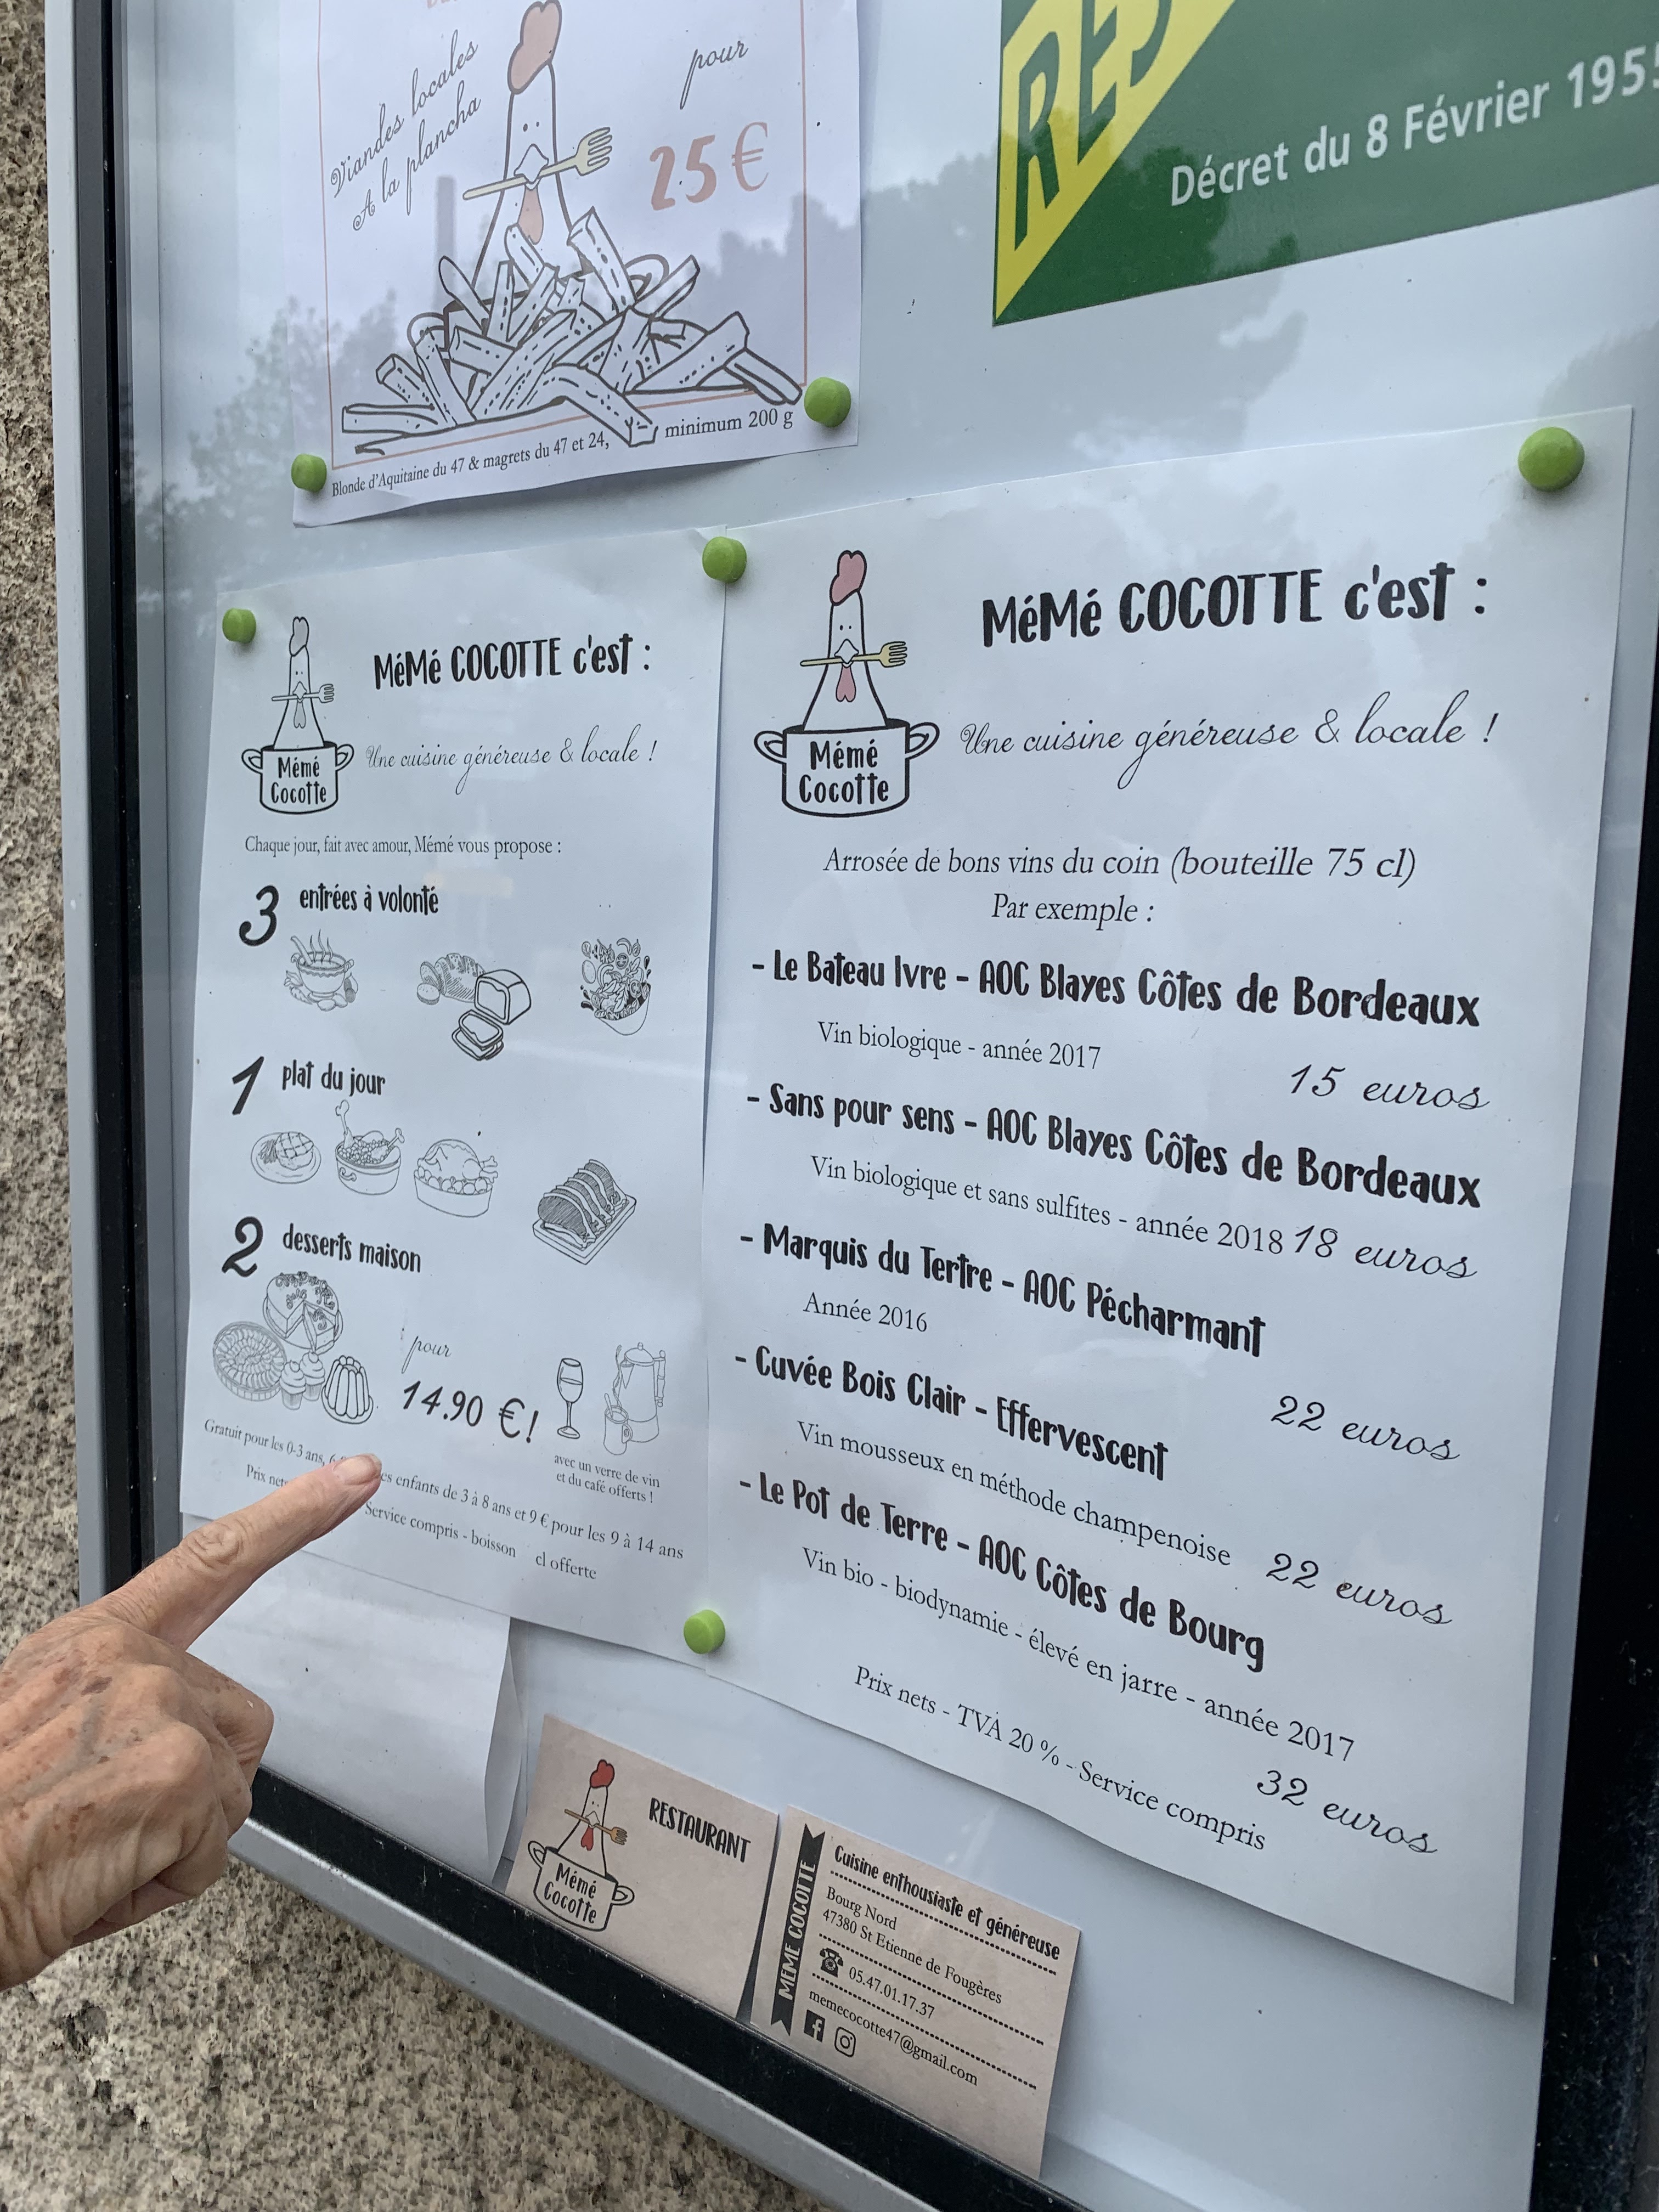 Viandes locales
A la plancha
pour
25€
Blonde d'Aquitaine du 47 & magrets du 47 et 24, minimum 200 g
Décret du 8 Février 195
MéMé COCOTTE c'est :
Une cuisine généreuse & locale !
Mémé
Cocotte
Chaque jour, fait avec amour, Mémé vous propose :
3 entrées à volonté
1 plat du jour
2 desserts maison
pour
14.90 €!
avec un verre de vin
et du café offerts !
Gratuit pour les 0-3 ans, enfants de 3 à 8 ans et 9 € pour les 9 à 14 ans
Prix Service compris - boisson cl offerte
MéMé COCOTTE c'est :
Une cuisine généreuse & locale !
Mémé
Cocotte
Arrosée de bons vins du coin (bouteille 75 cl)
Par exemple :
- Le Bateau Ivre - AOC Blayes Côtes de Bordeaux
Vin biologique - année 2017
15 euros
- Sans pour sens - AOC Blayes Côtes de Bordeaux
Vin biologique et sans sulfites - année 2018 18 euros
- Marquis du Tertre - AOC Pécharmant
Année 2016
22 euros
- Cuvée Bois Clair - Effervescent
Vin mousseux en méthode champenoise 22 euros
- Le Pot de Terre - AOC Côtes de Bourg
Vin bio - biodynamie - élevé en jarre - année 2017
32 euros
Prix nets - TVA 20 % - Service compris
RESTAURANT
Mémé
Cocotte
MEME COCOTTE
Cuisine enthousiaste et généreuse
Bourg Nord
47380 St Etienne de Fougères
05.47.01.17.37
memecocotte47@gmail.com